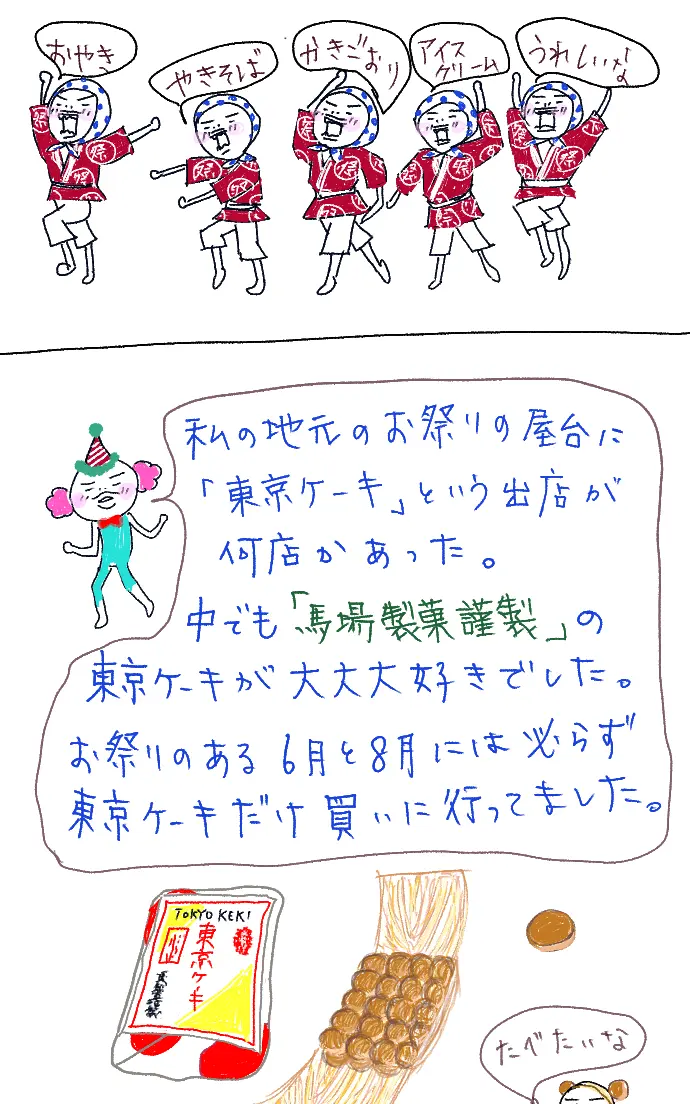 おやき
やきそば
かきごおり
アイス
クリーム
うれしいな
私の地元のお祭りの屋台に
「東京ケーキ」という出店が
何店かあった。
中でも「馬場製菓謹製」の
東京ケーキが大大大好きでした。
お祭りのある6月と8月には必らず
東京ケーキだけ買いに行ってました。
TOKYO KEKI
東京ケーキ
たべたいな